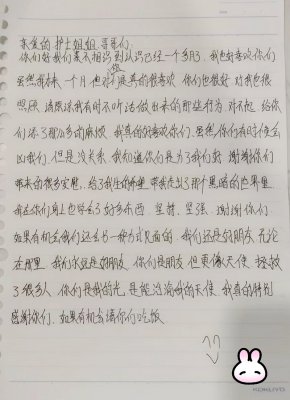 亲爱的护士姐姐、哥哥们:
你们好!我们素不相识到认识已经一个多月了,我也好喜欢你们
虽然我来一个月但你们是真的很喜欢,你们也很好,对我也很
照顾,请原谅我有时不听话做出来的那些行为,对不起,给你
们添了那么多的麻烦,我真的好喜欢你们,虽然你们有时候会
凶我们,但是没关系,我知道你们是为了我们好,谢谢你们
带来的很多实惠,给了我生的希望,带我走出了那个黑暗的世界里
我在你们身上也学会了好多东西,坚持、坚强、谢谢你们,
如果有机会我们还会另一种方式见面的,我们还是好朋友,无论
在哪里,我们永远是好朋友,你们是朋友,但更像天使,拯救
了很多人,你们是我的光,是能治愈我的天使,我真的特别
感谢你们,如果有机会请你们吃饭
KOKUYO